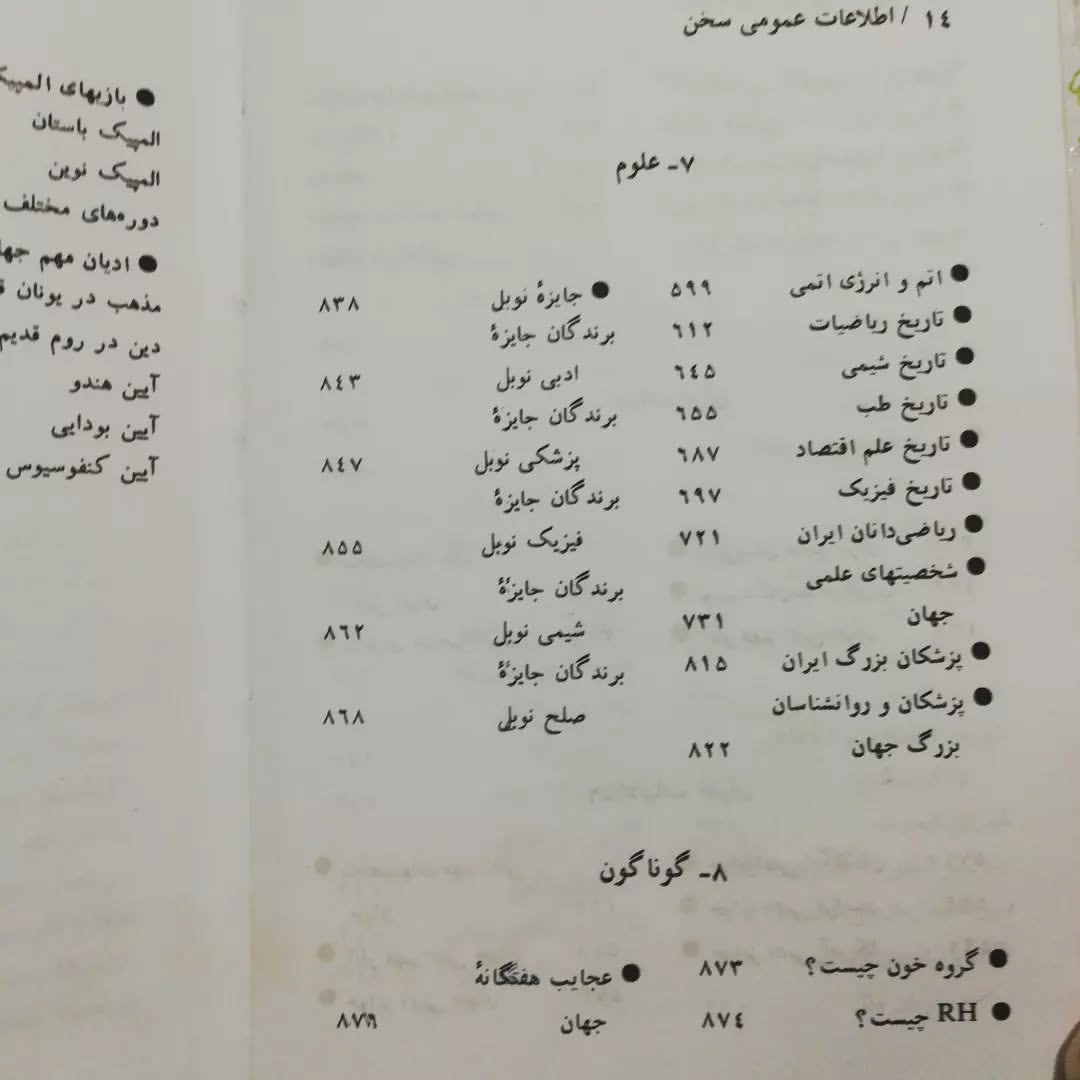 ١٤ / اطلاعات عمومی سخن
٧ـ علوم
● اتم و انرژی اتمی ٥٩٩
● تاریخ ریاضیات ٦١٢
● تاریخ شیمی ٦٤٥
● تاریخ طب ٦٥٥
● تاریخ علم اقتصاد ٦٨٧
● تاریخ فیزیک ٦٩٧
● ریاضی‌دانان ایران ٧٢١
● شخصیتهای علمی
جهان ٧٣١
● پزشکان بزرگ ایران ٨١٥
● پزشکان و روانشناسان
بزرگ جهان ٨٢٢
● جایزهٔ نوبل ٨٣٨
برندگان جایزهٔ
ادبی نوبل ٨٤٣
برندگان جایزهٔ
پزشکی نوبل ٨٤٧
برندگان جایزهٔ
فیزیک نوبل ٨٥٥
برندگان جایزهٔ
شیمی نوبل ٨٦٢
برندگان جایزهٔ
صلح نوبل ٨٦٨
٨ـ گوناگون
● گروه خون چیست؟ ٨٧٣
● RH چیست؟ ٨٧٤
● عجایب هفتگانهٔ
جهان
● بازیهای
المپیک باستان
المپیک نوین
دوره‌های مختلف
● ادیان مهم
مذهب در یونان
دین در روم قدیم
آیین هندو
آیین بودایی
آیین کنفوسیوس